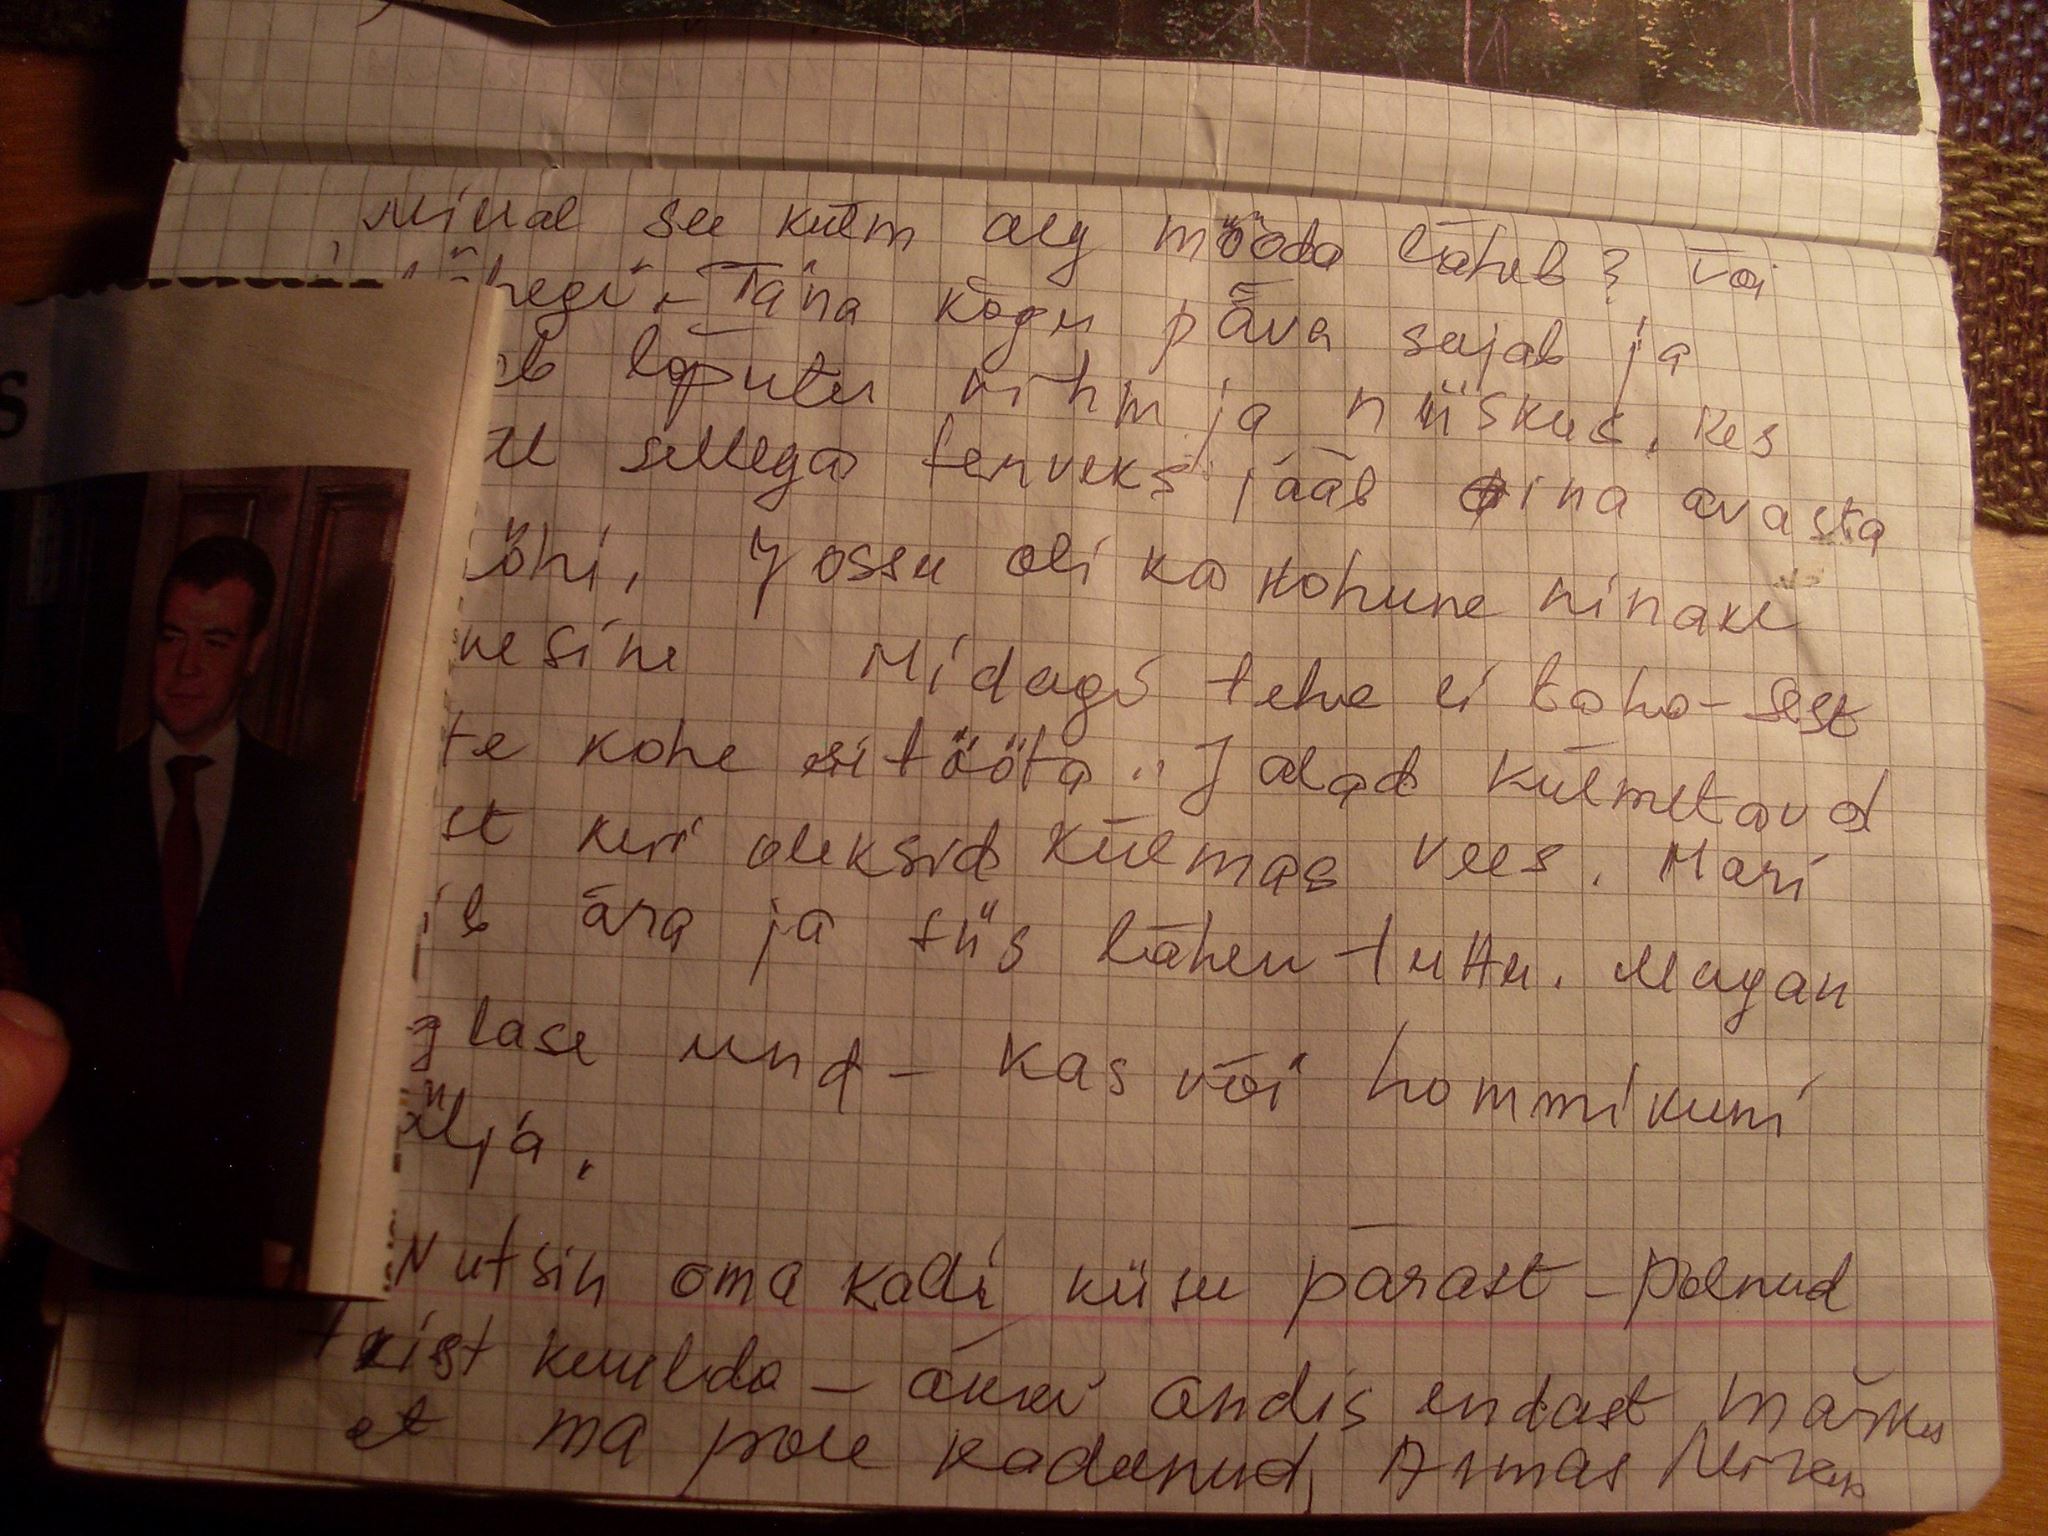 Millal see külm aeg mööda läheb? Või
Täna kogu päeva sajab ja
lõputu vihm ja niiskus. Kes
sellega terveks jääb ina avasta
Jossu oli ka kohune ninake
Midagi teha ei taha - sest
te kohe ei tööta. Jalad külmetavad
st kui oleksid külmas vees. Mari
ära ja siis lähen tuttu. Magan
lase und - kas või hommikuni
älja.
Nutsin oma kalli kiisu pärast - polnud
teist kuulda - äkki andis endast märku
et ma pole kadunud, Armas
S